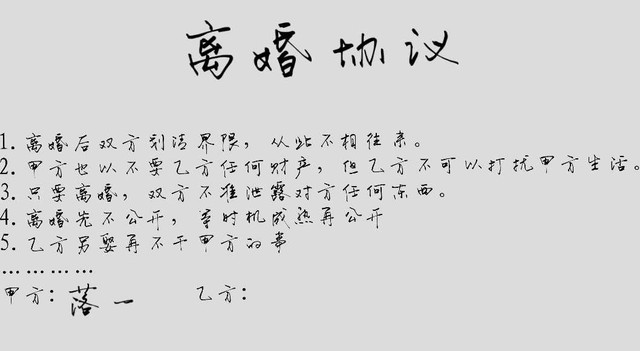 离婚协议
1. 离婚后双方划清界限，从此不相往来。
2. 甲方也以不要乙方任何财产，但乙方不可以打扰甲方生活。
3. 只要离婚，双方不准泄露对方任何东西。
4. 离婚先不公开，等时机成熟再公开
5. 乙方另娶再不干甲方的事
…………
甲方：落一 乙方：